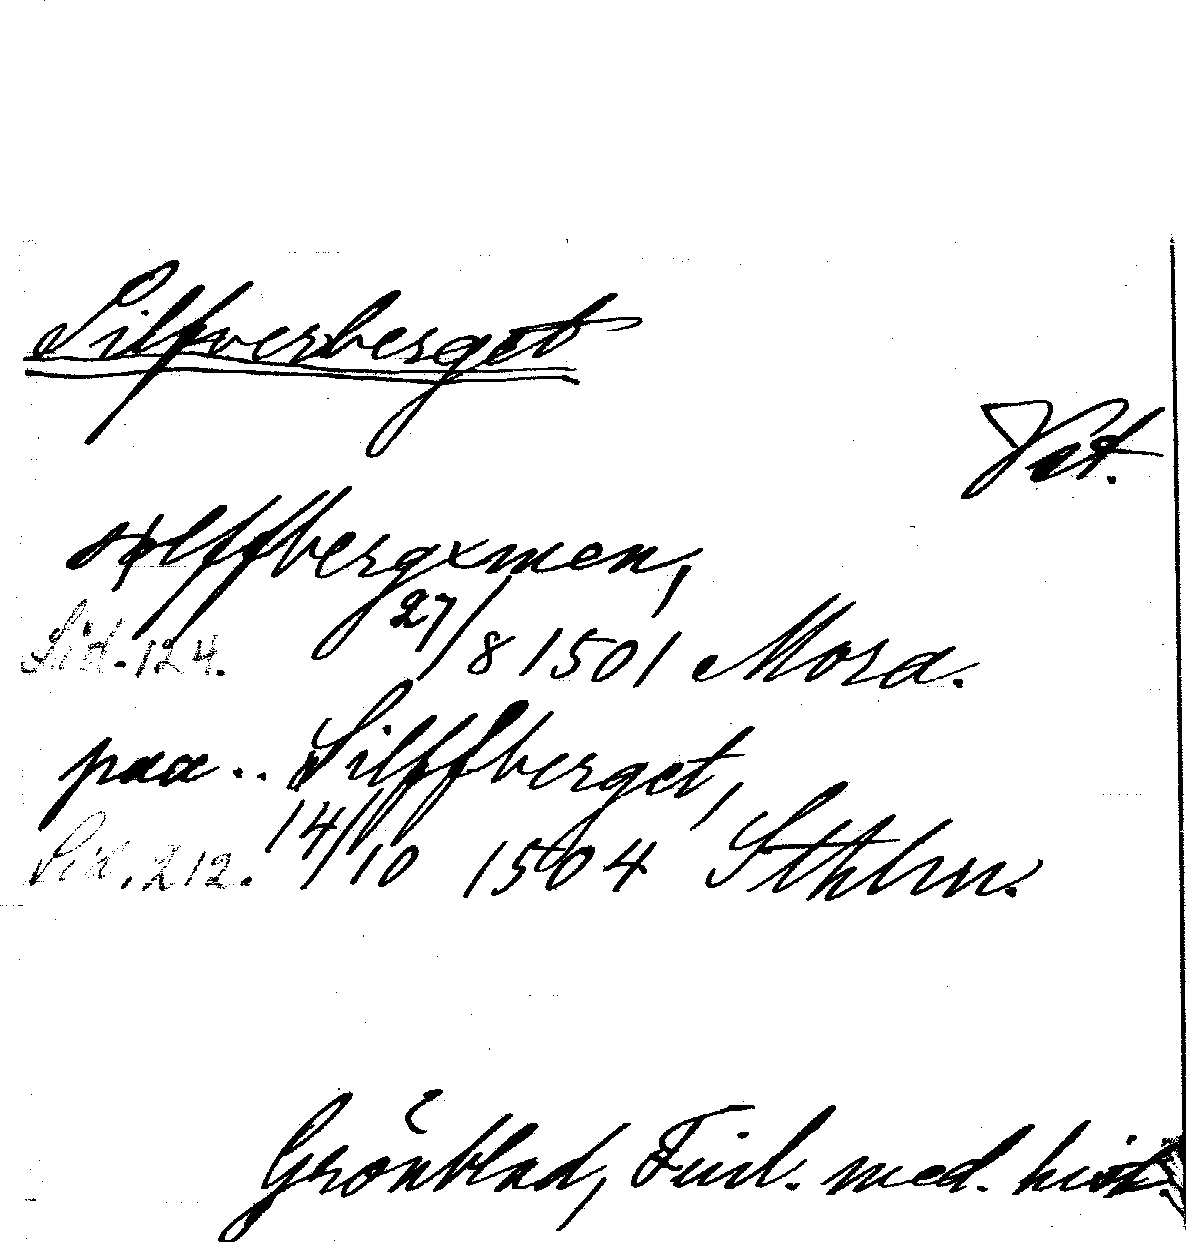 Silfverberget
Vst.
sylffbergxmen,
Sid. 124. 27/8 1501 Mora.
paa .. Silffberget,
Sid. 212. 14/10 1504 Sthlm.
Grönblad, Til. med. hist.